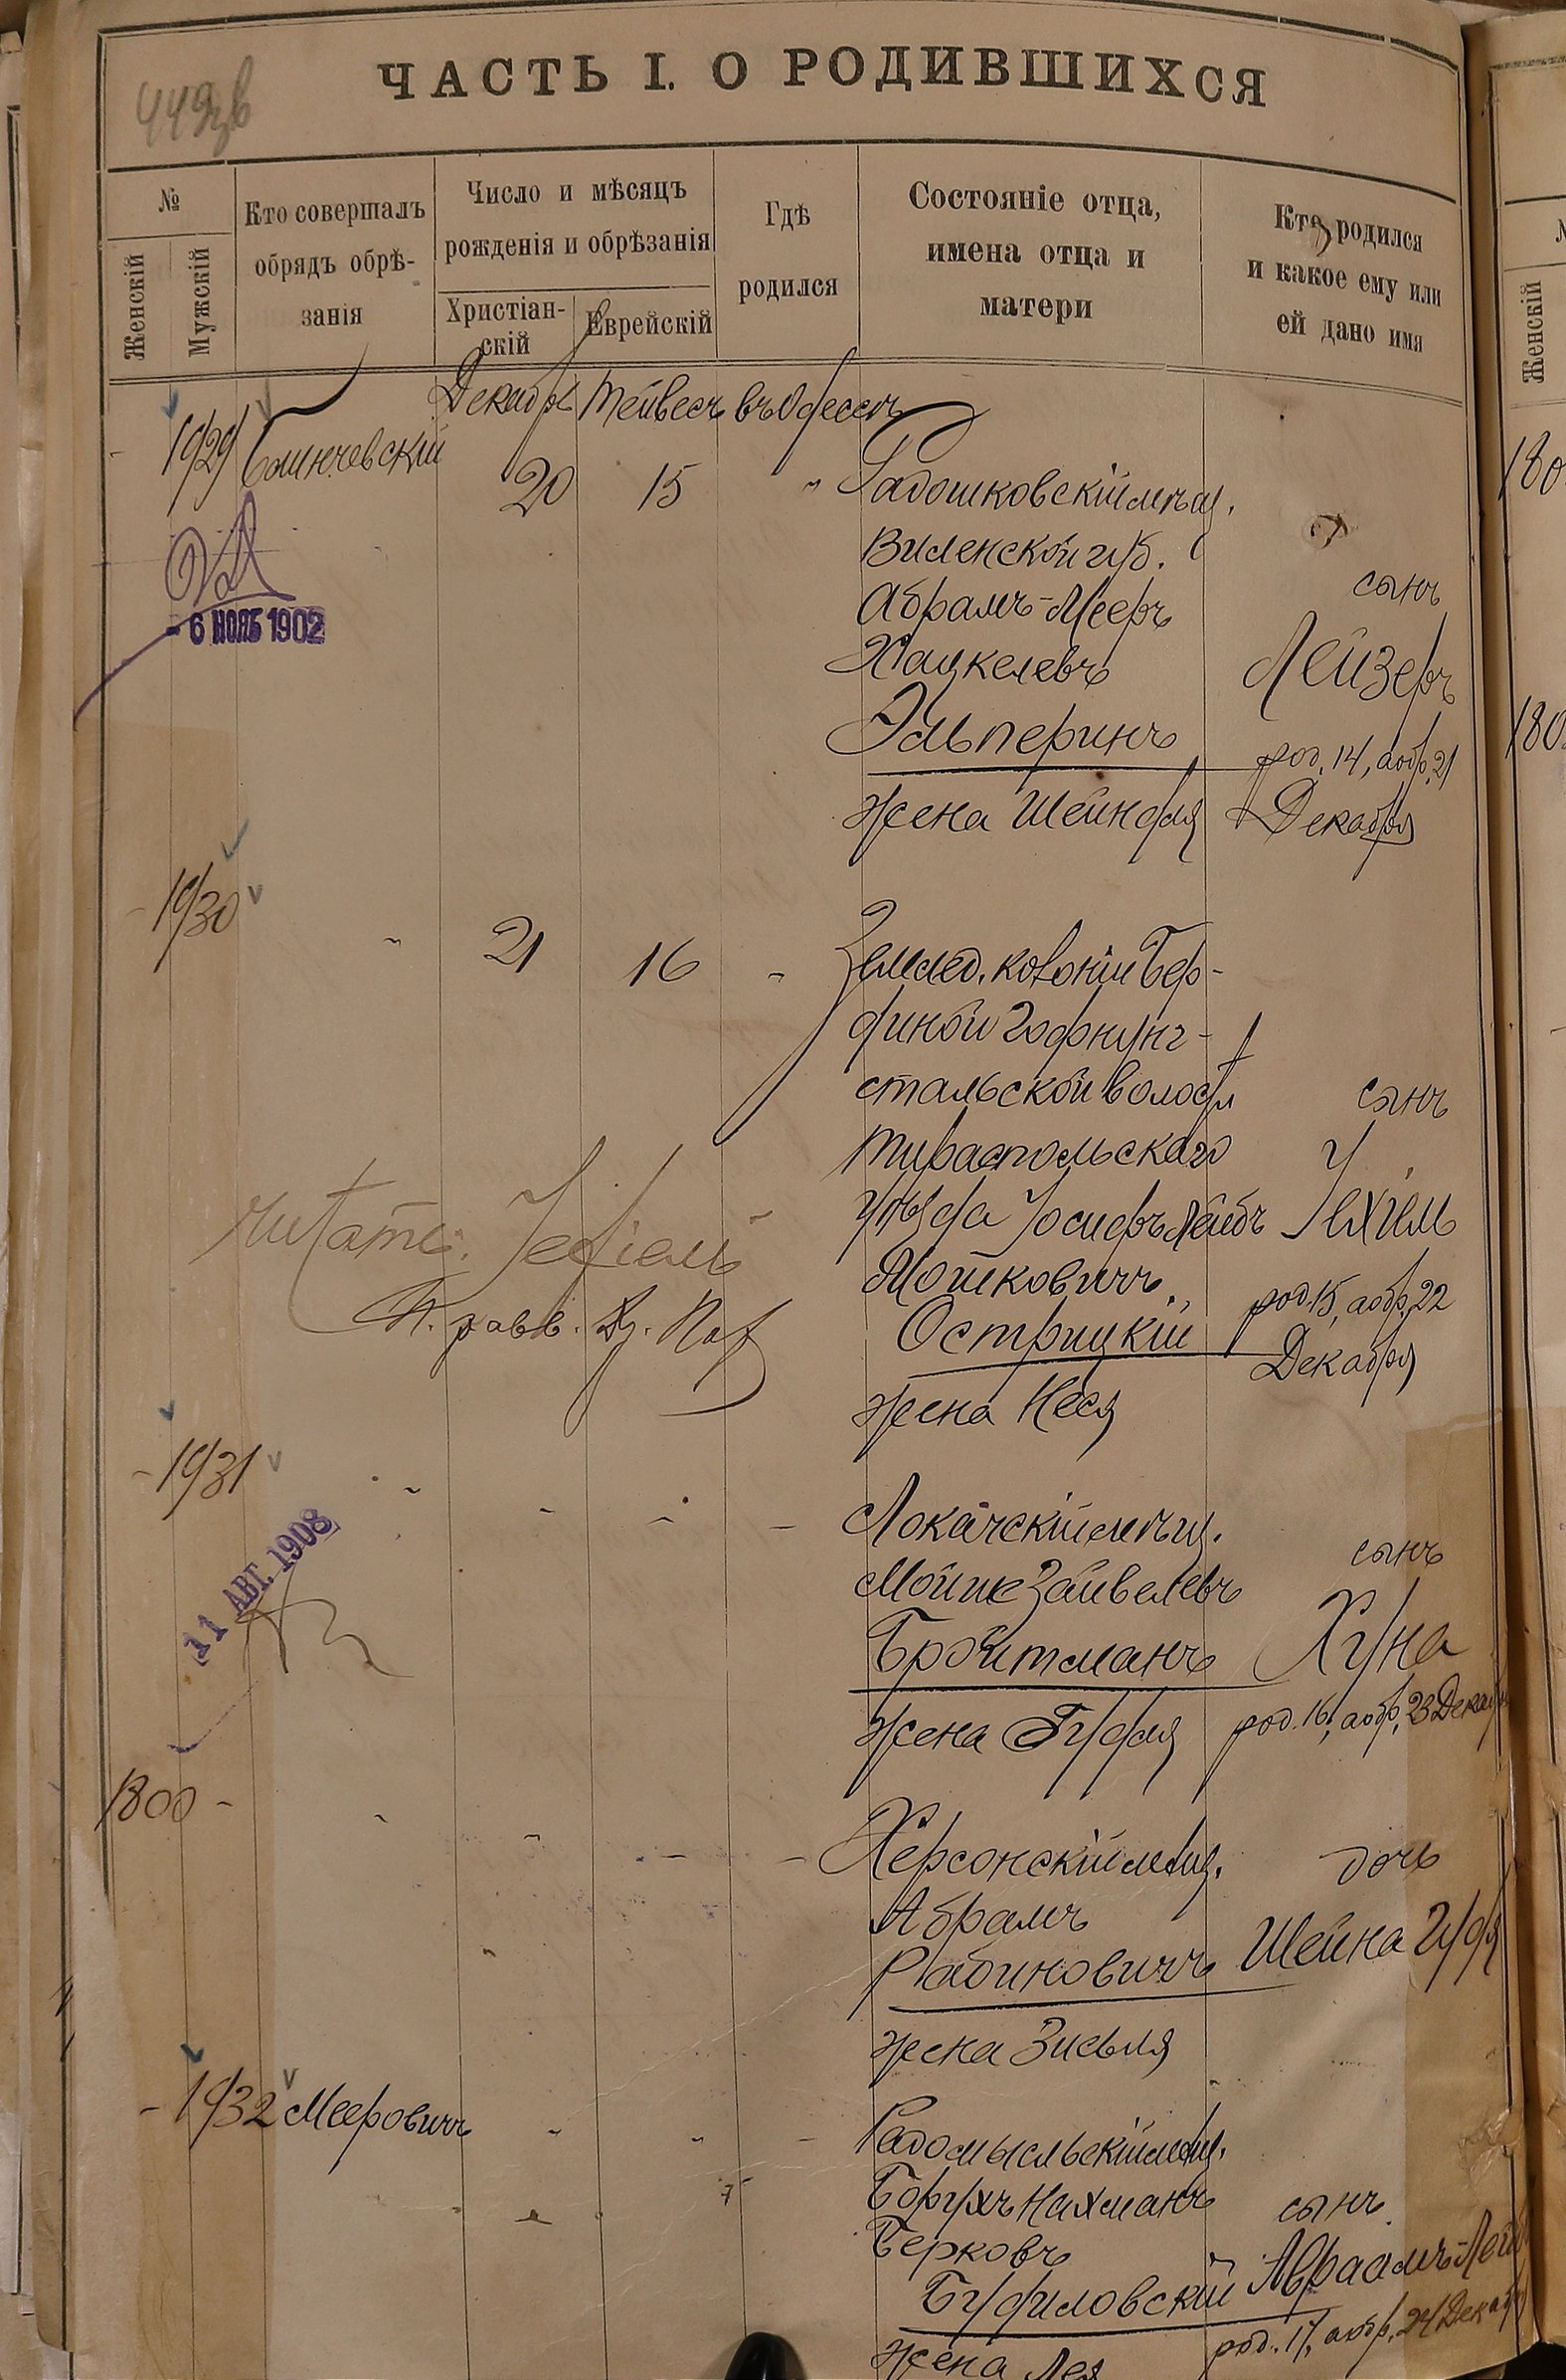 449 зв
ЧАСТЬ I. О РОДИВШИХСЯ
№
Женскій
Мужскій
Кто совершалъ
обрядъ обрѣ-
занія
Число и мѣсяцъ
рожденія и обрѣзанія
Христіан-
скій
Еврейскій
Гдѣ
родился
Состояніе отца,
имена отца и
матери
Кто родился
и какое ему или
ей дано имя
Декабрь Тейвесъ въ Одессѣ
1929
20 15 " Радошковскій мѣщ.
Виленской губ.
Абрамъ-Мееръ
Хацкелевъ
Эльперинъ
жена Шейндля
сынъ
Лейзеръ
род. 14, аобр. 21
Декабря
- 6 НОЯБ 1902
1930 21 16
Землед. колоніи Бер-
финой Гофнунг-
стальской волости
Тираспольскаго
уѣзда Іосифъ Лейбъ
Мошковичъ
Острицкій
жена Неся
сынъ
Іехіиль
род. 15, аобр. 22
Декабря
читать: Іехіель
1931
Локачскій мѣщ.
Мойше Зайвелевъ
Бройтманъ
жена Гудля
сынъ
Хуна
род. 16, аобр. 23 Декабря
11 АВГ. 1908
1800 -
Херсонскій мѣщ.
Абрамъ
Рабиновичъ
жена Зисьля
дочь
Шейна Гудя
- 1932 Мееровичъ
Радомысльскій мѣщ.
Борухъ Нахманъ
Берковъ
Будиловскій
жена Лея
сынъ
Авраамъ-Лейбъ
род. 17, аобр. 24 Декабря
Женскій
180
180